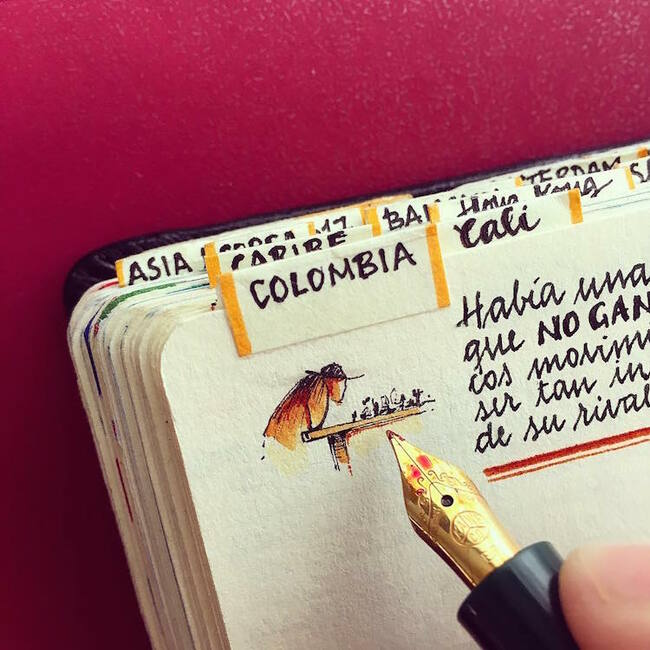 ASIA
CARIBE
COLOMBIA
Cali
Había una
que NO GAN
cos movimi
ser tan in
de su rival